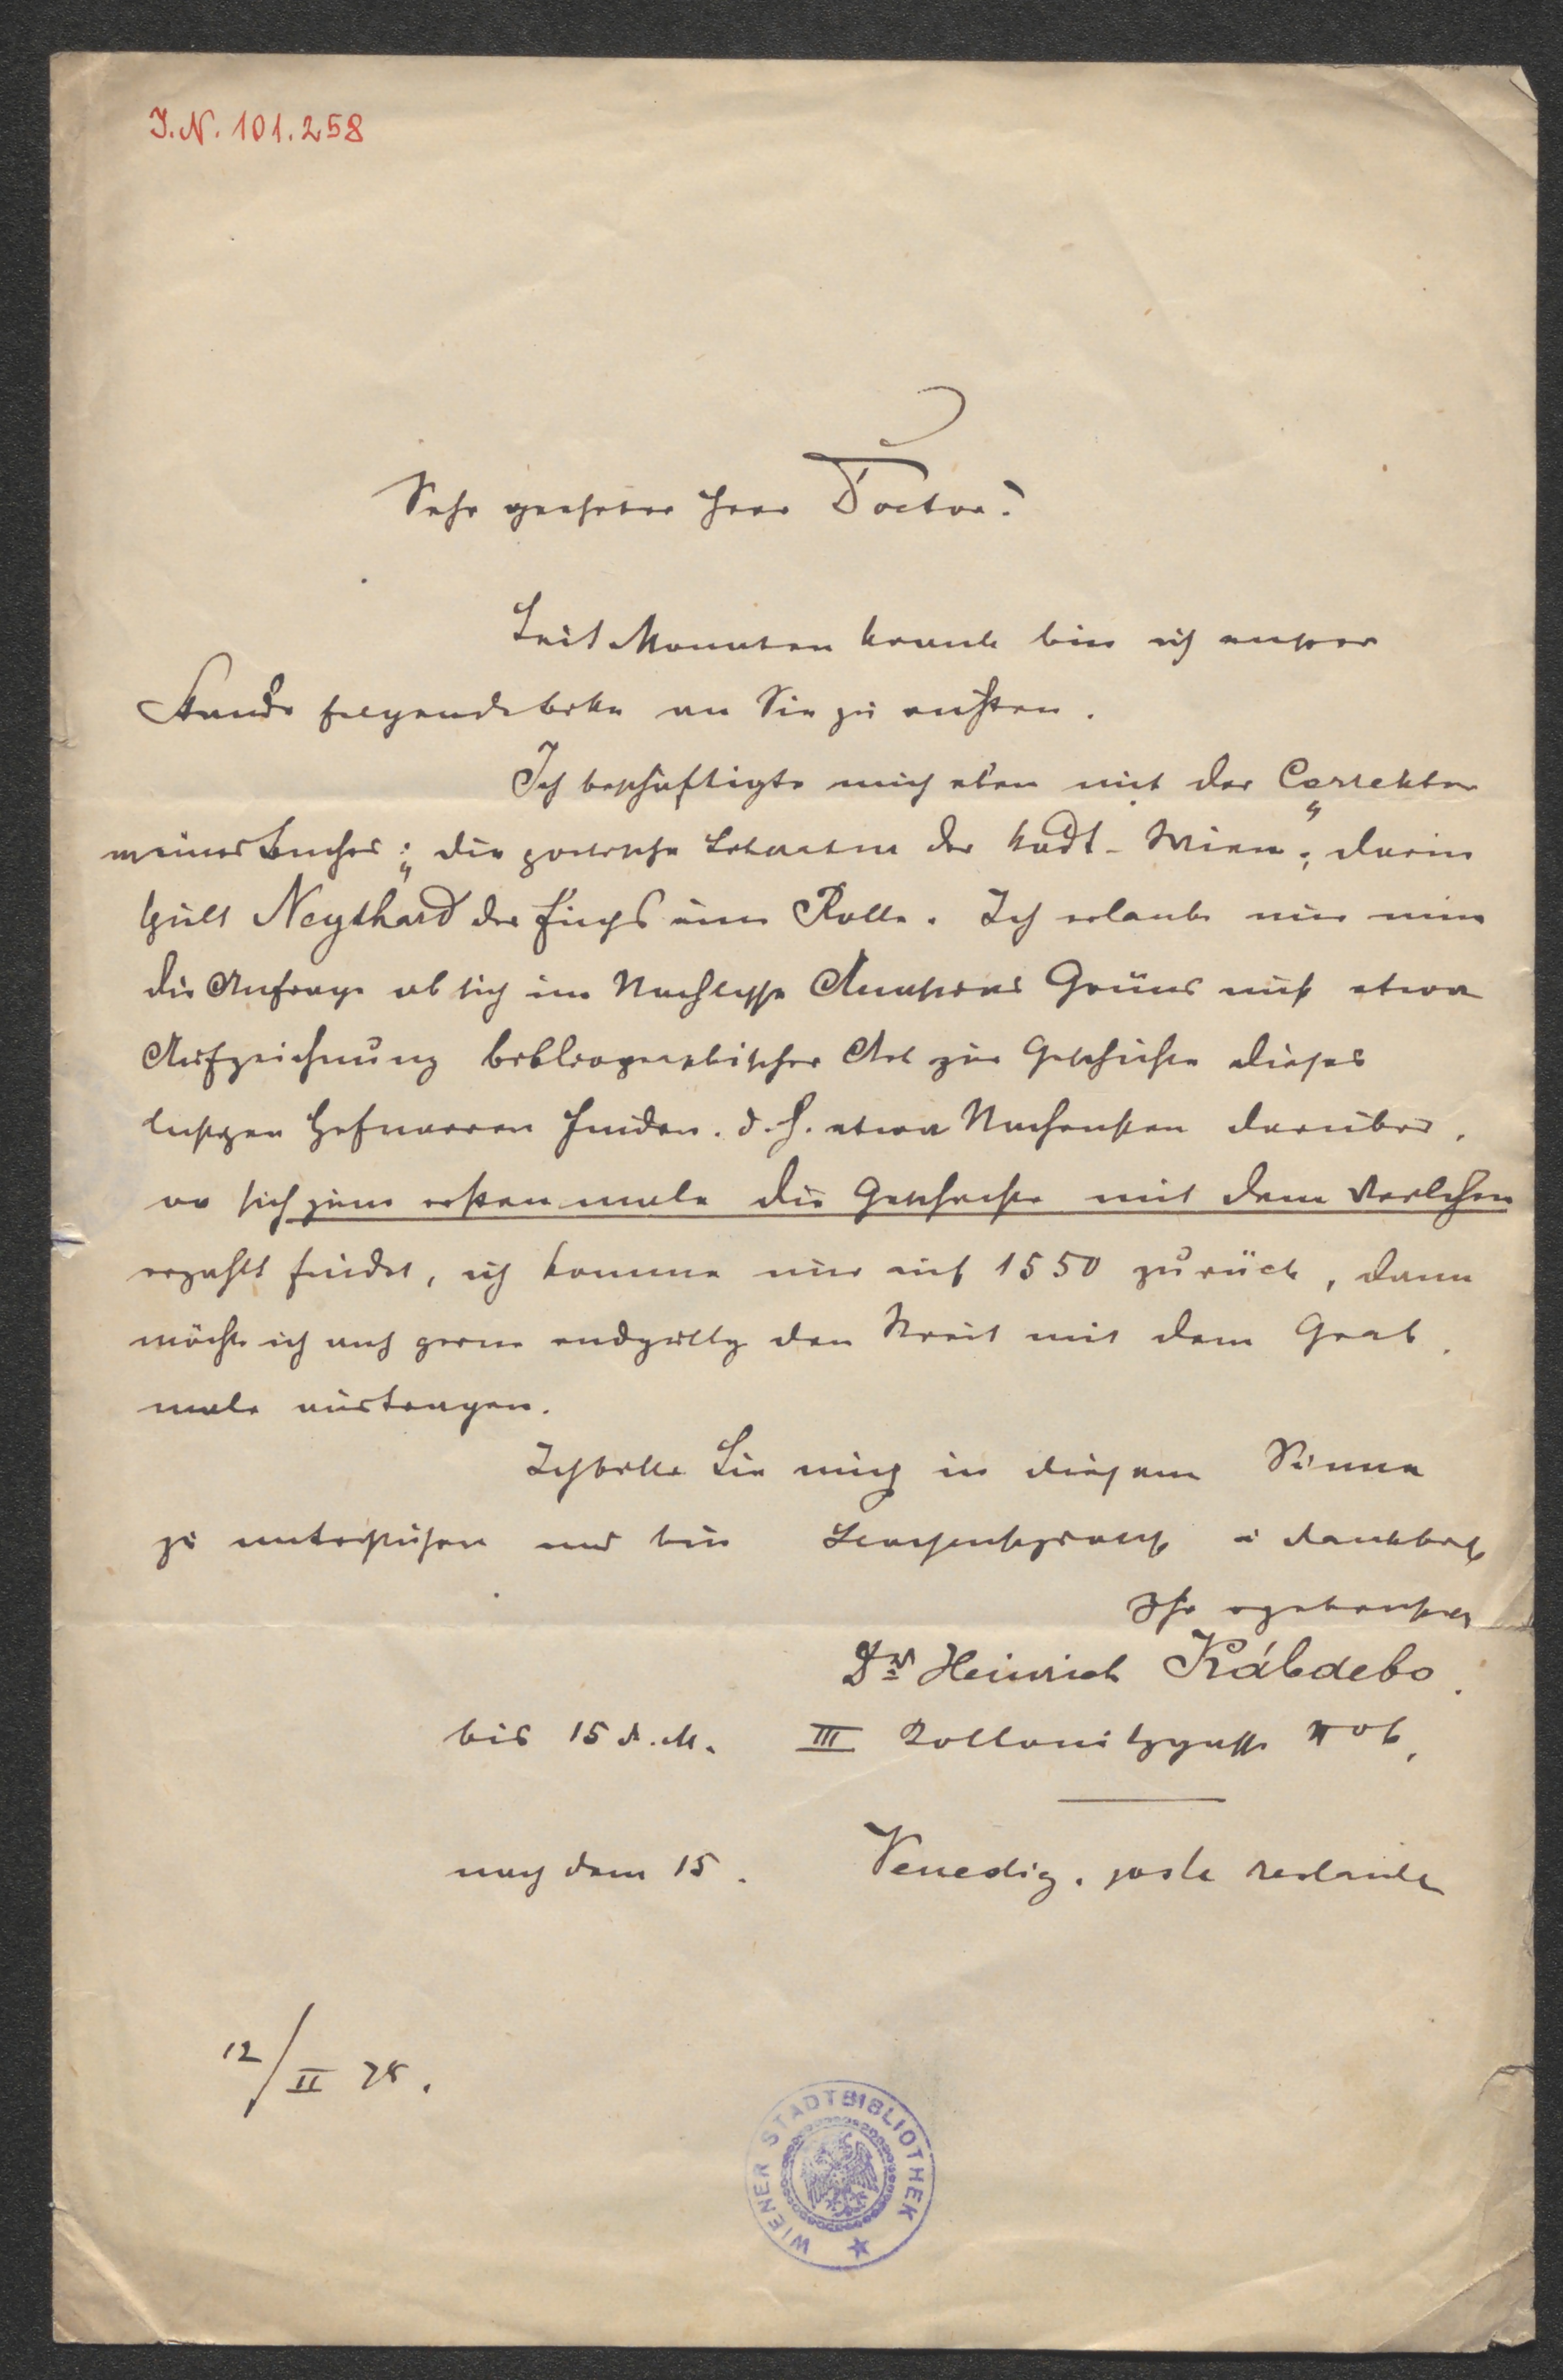 I.N. 101.258
Sehr geehrter Herr Doctor!
Seit Monaten krank bin ich ausser
Stande folgende bitte an Sie zu richten.
Ich beschäftigte mich eben mit der Correktur
meines Buches: „die poetische Literatur der Stadt-Wien“; darin
spielt Neythard der Fuchs eine Rolle. Ich erlaube mir nun
die Anfrage ob sich im Nachlasse Anastasius Grüns nicht etwa
Aufzeichnung bibliographischer Art zur Geschichte dieses
lustigen Hofnarren finden. d. h. etwa Nachrichten darüber,
wo sich zum ersten male die Geschichte mit dem Veilchen
erzählt findet, ich komme nur auf 1550 zurück, dann
möchte ich auch gerne endgültig den Streit mit dem Grab-
male austragen.
Ich bitte Sie mich in diesem Sinne
zu unterstützen und bin hochachtungsvoll u dankbarst
Ihr ergebenster
Dr Heinrich Kábdebo.
bis 15 d. M. III Kollonitzgasse No 6,
nach dem 15. Venedig. poste restante
12/II 78.
WIENER STADTBIBLIOTHEK